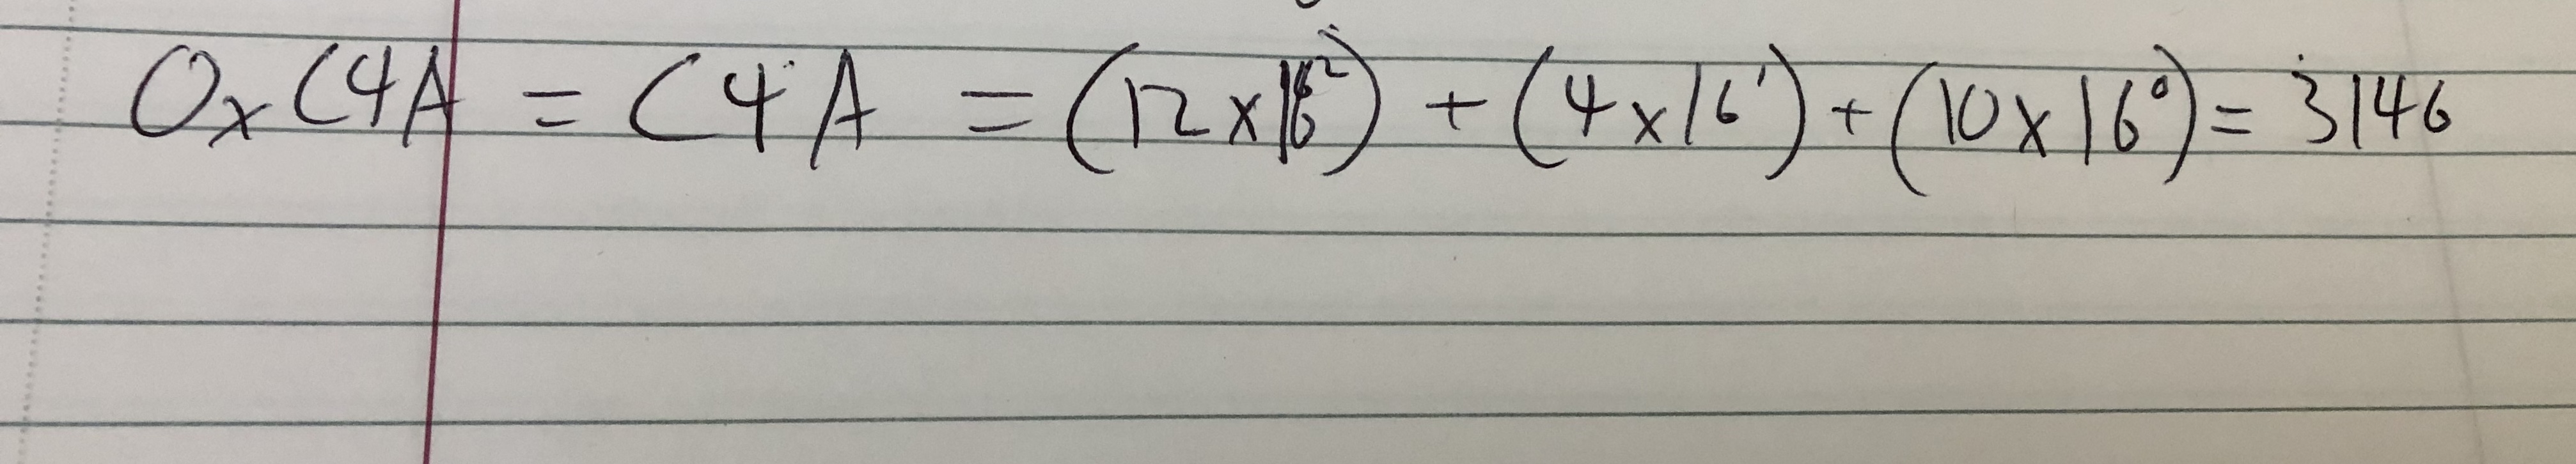 0xC4A = C4A = (12x16²) + (4x16¹) + (10x16⁰) = 3146